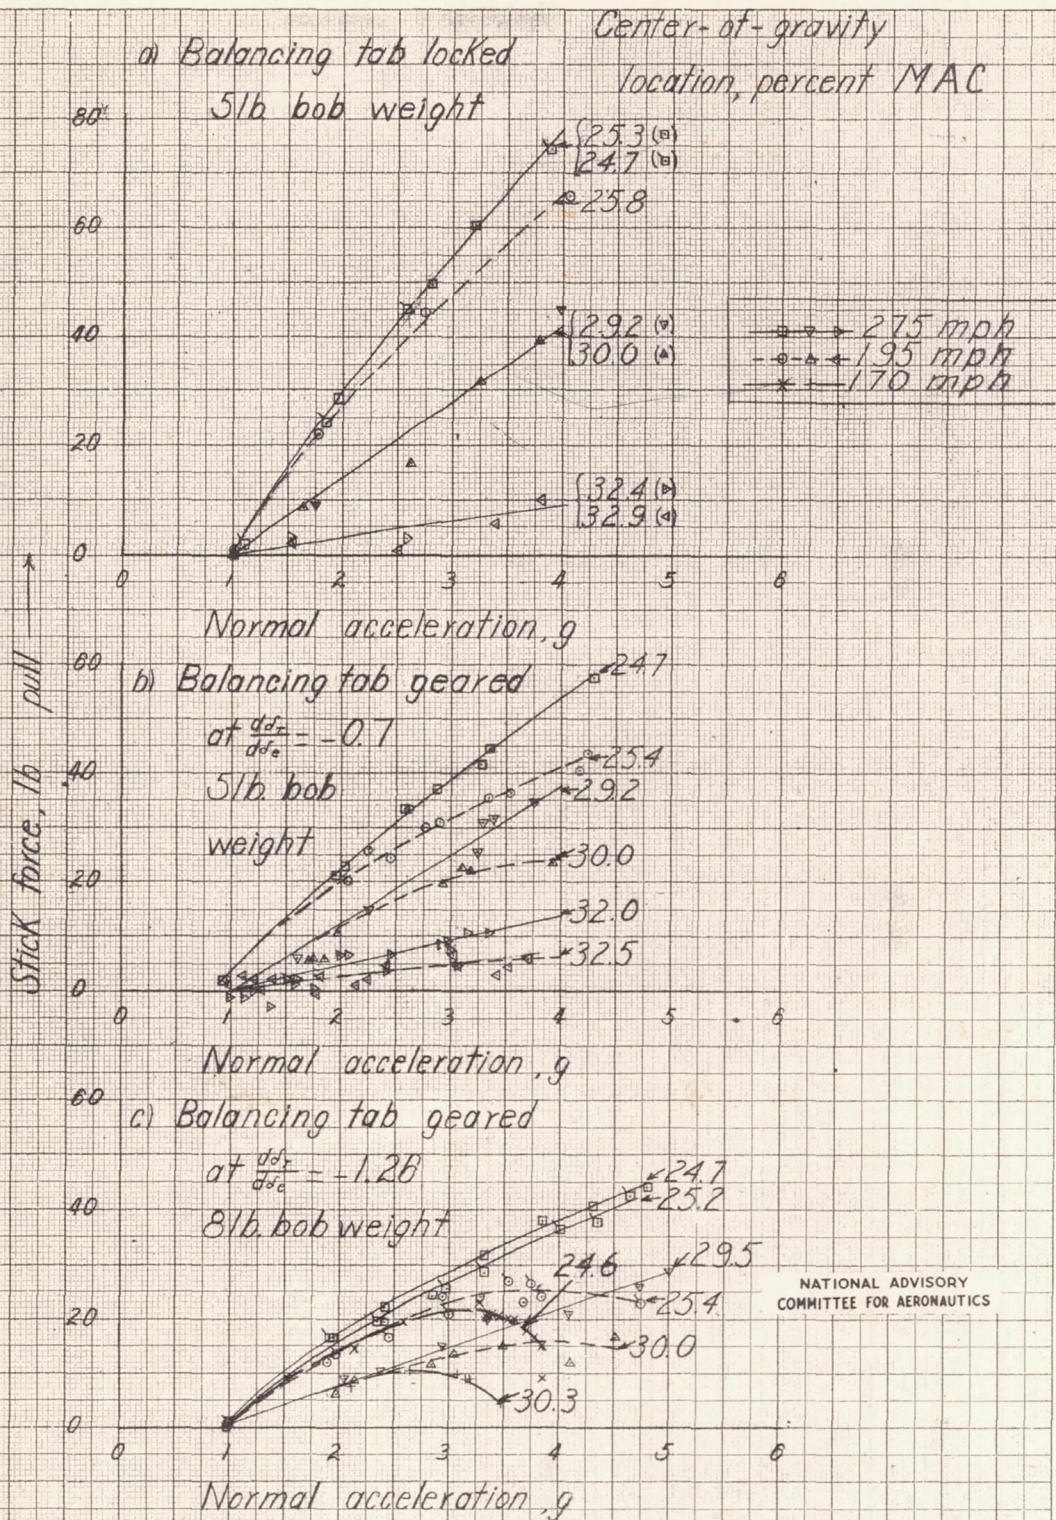 Center-of-gravity
location, percent MAC
a) Balancing tab locked
5 lb. bob weight
80
60
40
20
0
25.3
24.7
25.8
29.2
30.0
32.4
32.9
275 mph
195 mph
170 mph
0 1 2 3 4 5 6
Normal acceleration, g
Stick force, lb pull
b) Balancing tab geared
at dδT/dδe = -0.7
5 lb. bob
weight
60
40
20
0
24.7
25.4
29.2
30.0
32.0
32.5
0 1 2 3 4 5 6
Normal acceleration, g
c) Balancing tab geared
at dδT/dδe = -1.26
8 lb. bob weight
60
40
20
0
24.7
25.2
24.6
29.5
25.4
30.0
30.3
NATIONAL ADVISORY
COMMITTEE FOR AERONAUTICS
0 1 2 3 4 5 6
Normal acceleration, g